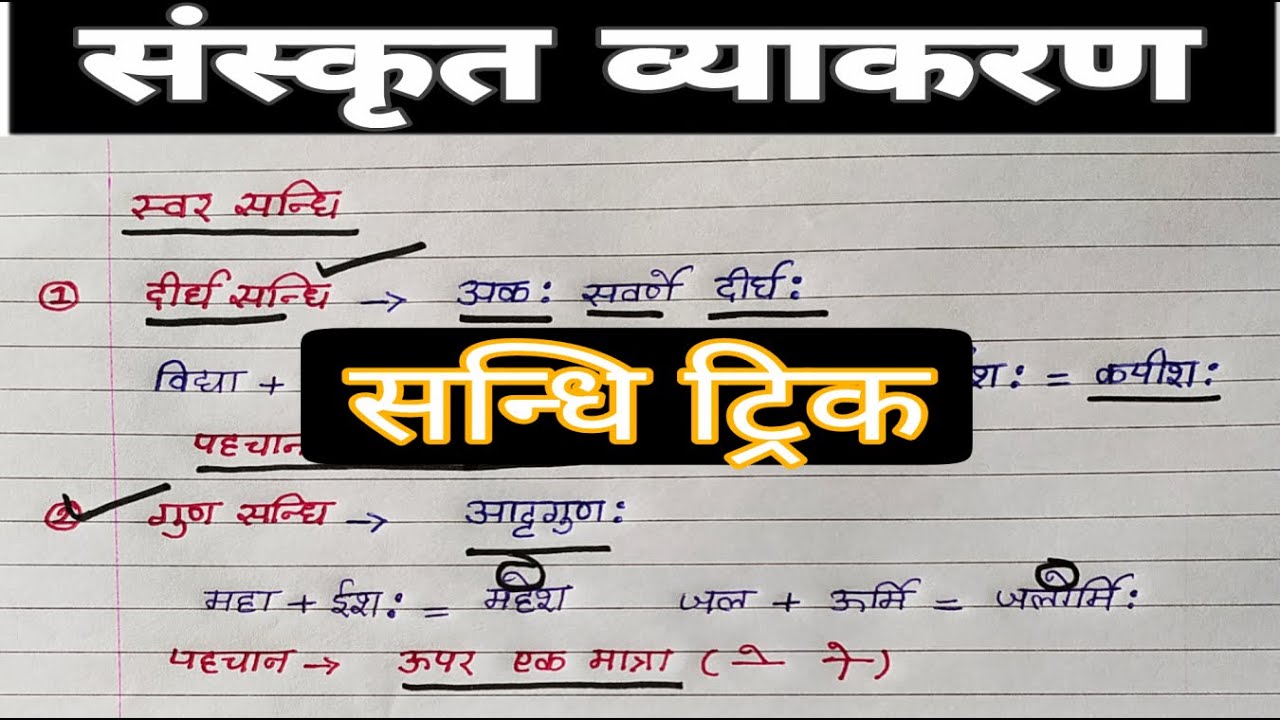 संस्कृत व्याकरण
स्वर सन्धि
① दीर्घ सन्धि → अकः सवर्णे दीर्घः
विद्या +
सन्धि ट्रिक
शः = कपीशः
पहचान
② गुण सन्धि → आद्गुणः
महा + ईशः = महेश जल + ऊर्मि = जलोर्मिः
पहचान → ऊपर एक मात्रा ( े ो )